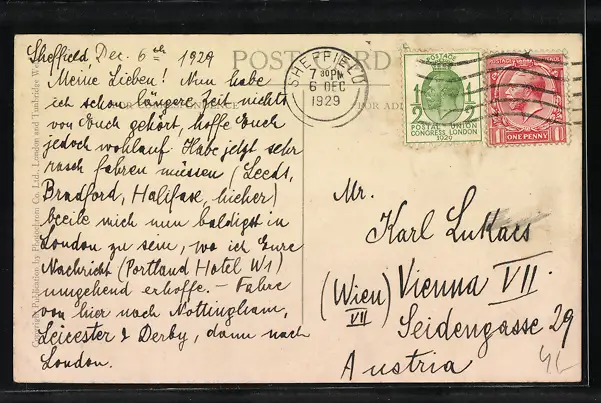 Sheffield, Dec. 6th 1929
Meine Lieben! Nun habe
ich schon längere Zeit nichts
von Euch gehört, hoffe Euch
jedoch wohlauf. Habe jetzt sehr
rasch fahren müssen (Leeds,
Bradford, Halifax, hieher)
beeile mich nun baldigst in
London zu sein, wo ich Eure
Nachricht (Portland Hotel W1)
umgehend erhoffe. – Fahre
von hier nach Nottingham,
Leicester & Derby, dann nach
London.
POST CARD
FOR
Copyright Publication by Photochrom Co. Ltd., London and Tunbridge
SHEFFIELD
7 30PM
6 DEC
1929
POSTAGE
1 2
POSTAL UNION
CONGRESS LONDON
1929
POSTAGE
1 1
ONE PENNY
Mr.
Karl Lukacs
(Wien) Vienna VII.
VII
Seidengasse 29
Austria